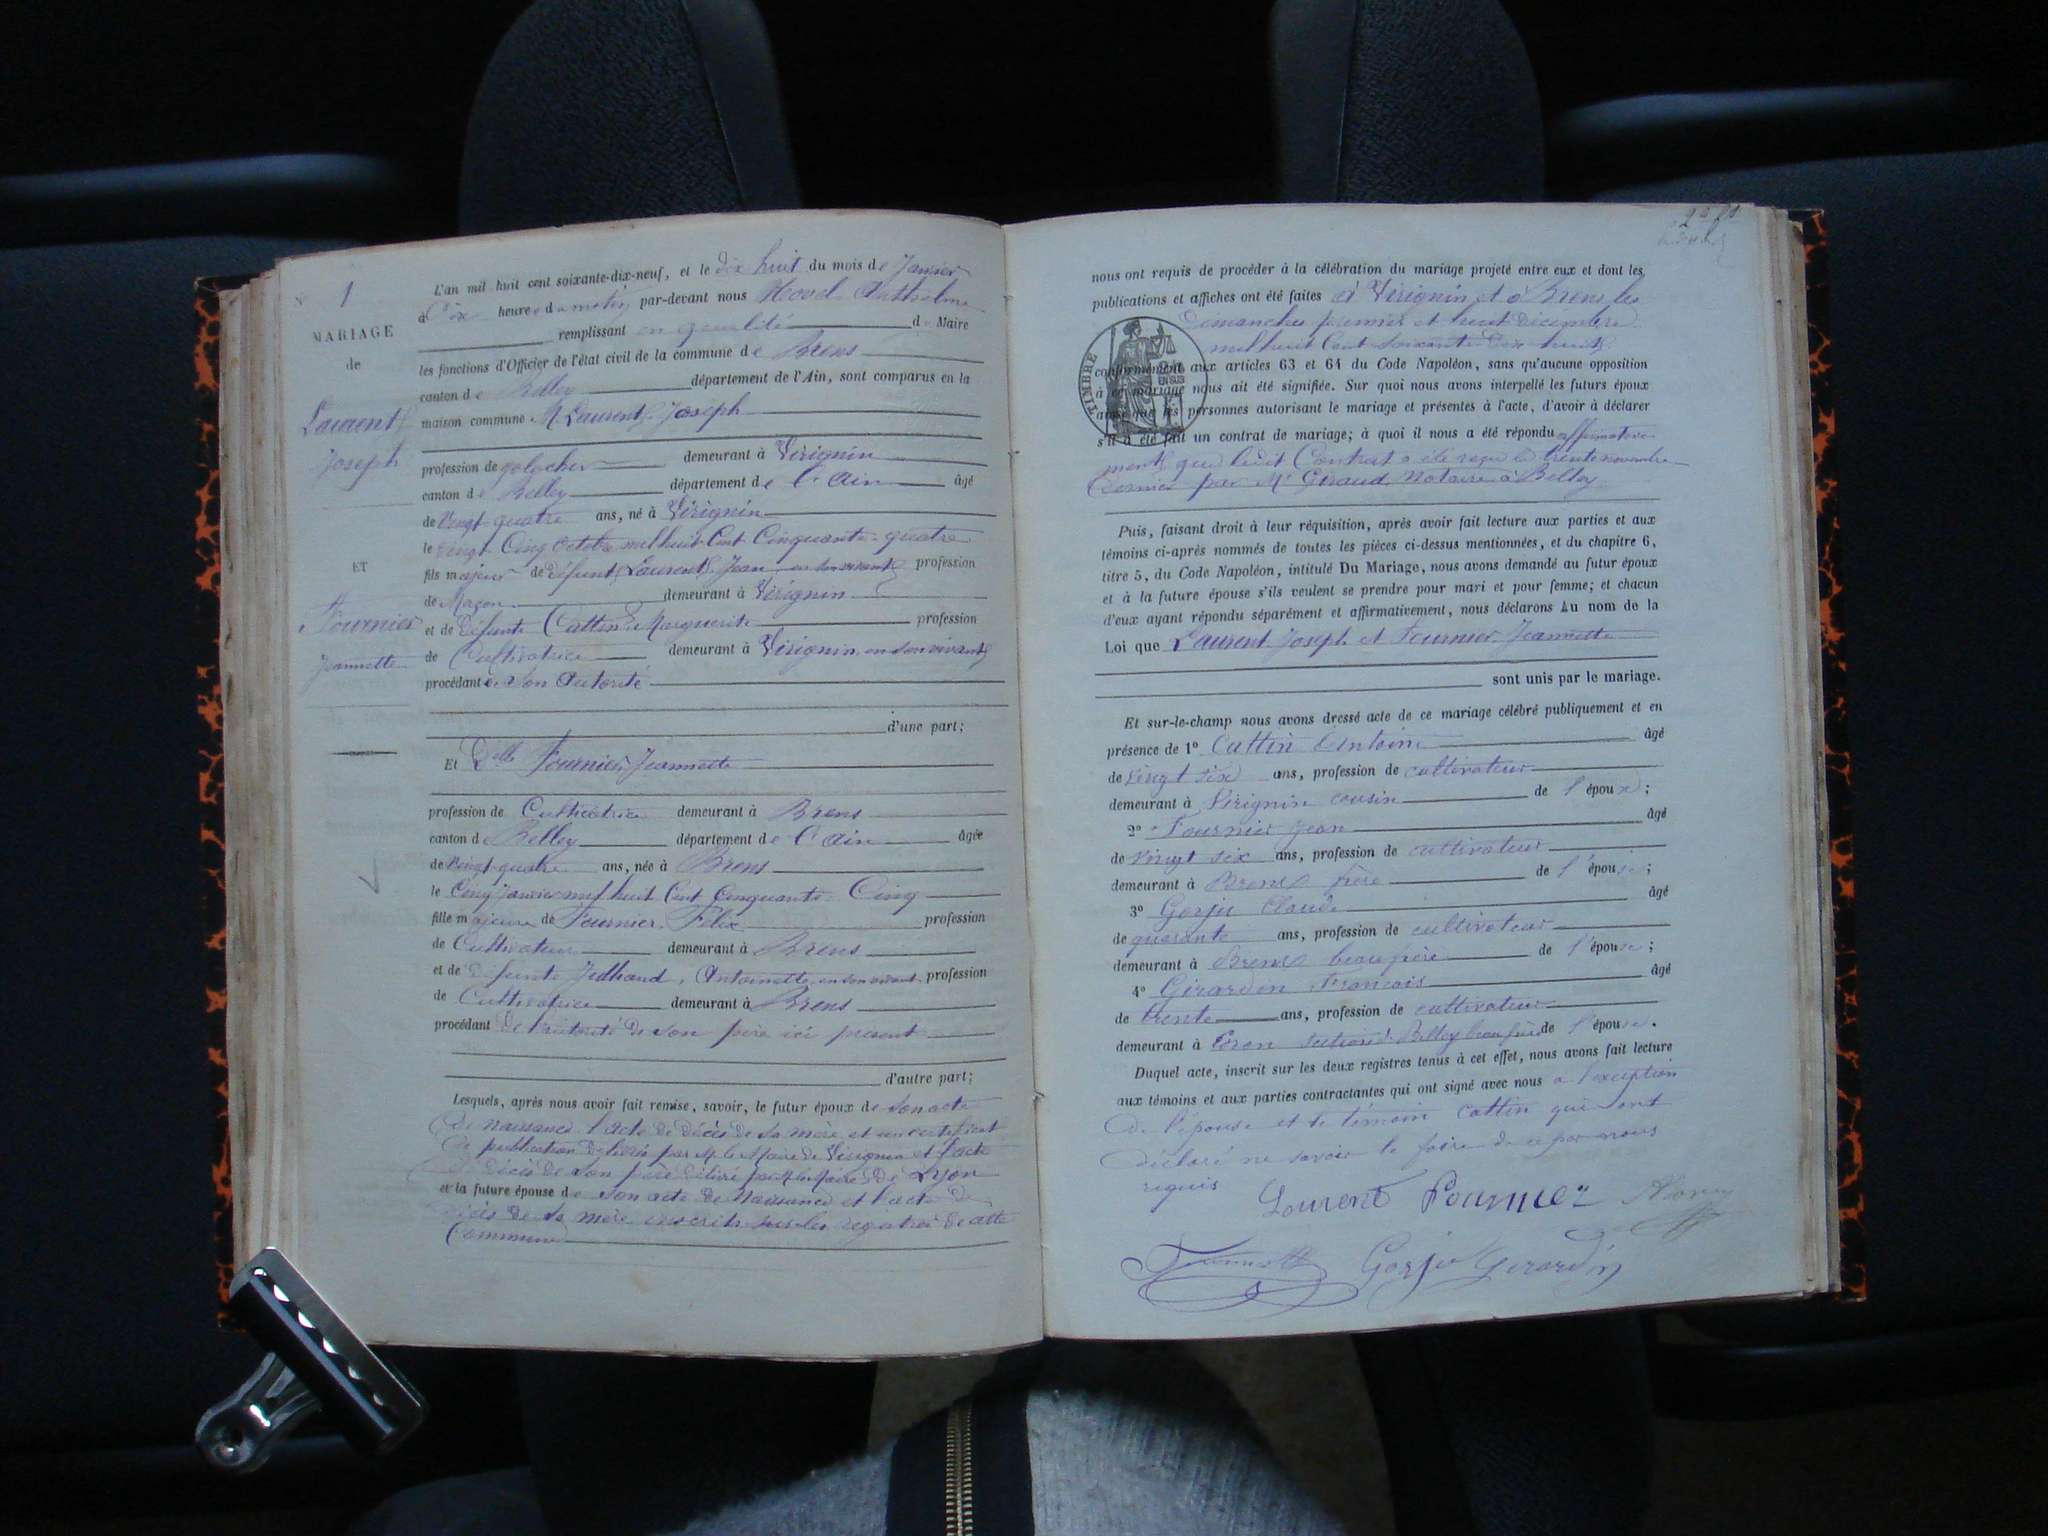 N° 1
MARIAGE
de
Laurent
Joseph
ET
Fournier
Jeannette
L'an mil huit cent soixante-dix-neuf, et le dix huit du mois de Janvier
à Dix heures du matin par-devant nous Anthelme
remplissant en qualité de Maire
les fonctions d'Officier de l'état civil de la commune de Brens
canton de Belley département de l'Ain, sont comparus en la
maison commune M. Laurent Joseph
profession de galocher demeurant à Virignin
canton de Belley département de l'Ain âgé
de Vingt quatre ans, né à Virignin
le Vingt Cinq Octobre mil huit Cent Cinquante-quatre
fils majeur de défunt Laurent Jean, en son vivant profession
de Maçon demeurant à Virignin
et de défunte Cattin Marguerite profession
de Cultivatrice demeurant à Virignin, en son vivant
procédant de son Autorité
d'une part;
Et Delle Fournier Jeannette
profession de Cultivatrice demeurant à Brens
canton de Belley département de l'Ain âgée
de Vingt-quatre ans, née à Brens
le Cinq Janvier mil huit Cent Cinquante-Cinq
fille majeure de Fournier Félix profession
de Cultivateur demeurant à Brens
et de défunte Antoinette, en son vivant profession
de Cultivatrice demeurant à Brens
procédant de l'autorité de son père ici présent
d'autre part;
Lesquels, après nous avoir fait remise, savoir, le futur époux de son acte
de naissance l'acte de décès de sa mère et un certificat
de publication délivrés par M. le Maire de Virignin et l'acte
de décès de son père délivré par M. le Maire de Lyon
et la future épouse de son acte de naissance et l'acte de
décès de sa mère inscrits sur les registres de cette
Commune
nous ont requis de procéder à la célébration du mariage projeté entre eux et dont les
publications et affiches ont été faites à Virignin et à Brens les
Dimanches premier et huit Décembre
mil huit Cent Soixante-Dix-huit
conformément aux articles 63 et 64 du Code Napoléon, sans qu'aucune opposition
à ce mariage nous ait été signifiée. Sur quoi nous avons interpellé les futurs époux
ainsi que les personnes autorisant le mariage et présentes à l'acte, d'avoir à déclarer
s'il a été fait un contrat de mariage; à quoi il nous a été répondu affirmative-
ment que ledit Contrat a été reçu le trente novembre
dernier par Me Giraud Notaire à Belley
TIMBRE
Puis, faisant droit à leur réquisition, après avoir fait lecture aux parties et aux
témoins ci-après nommés de toutes les pièces ci-dessus mentionnées, et du chapitre 6,
titre 5, du Code Napoléon, intitulé Du Mariage, nous avons demandé au futur époux
et à la future épouse s'ils veulent se prendre pour mari et pour femme; et chacun
d'eux ayant répondu séparément et affirmativement, nous déclarons Au nom de la
Loi que Laurent Joseph et Fournier Jeannette
sont unis par le mariage.
Et sur-le-champ nous avons dressé acte de ce mariage célébré publiquement et en
présence de 1° Cattin Antoine âgé
de Vingt six ans, profession de cultivateur
demeurant à Virignin cousin de l'époux;
2° Fournier Jean âgé
de Vingt six ans, profession de cultivateur
demeurant à Brens frère de l'épouse;
3° Gorju Claude âgé
de quarante ans, profession de cultivateur
demeurant à Brens beau frère de l'épouse;
4° Girardin Francois âgé
de trente ans, profession de cultivateur
demeurant à section de Belley beau frère de l'épouse.
Duquel acte, inscrit sur les deux registres tenus à cet effet, nous avons fait lecture
aux témoins et aux parties contractantes qui ont signé avec nous a l'exception
de l'épouse et le témoin Cattin qui ont
déclaré ne savoir le faire de ce par nous
requis
Lourent Fournier
Gorju Girardin